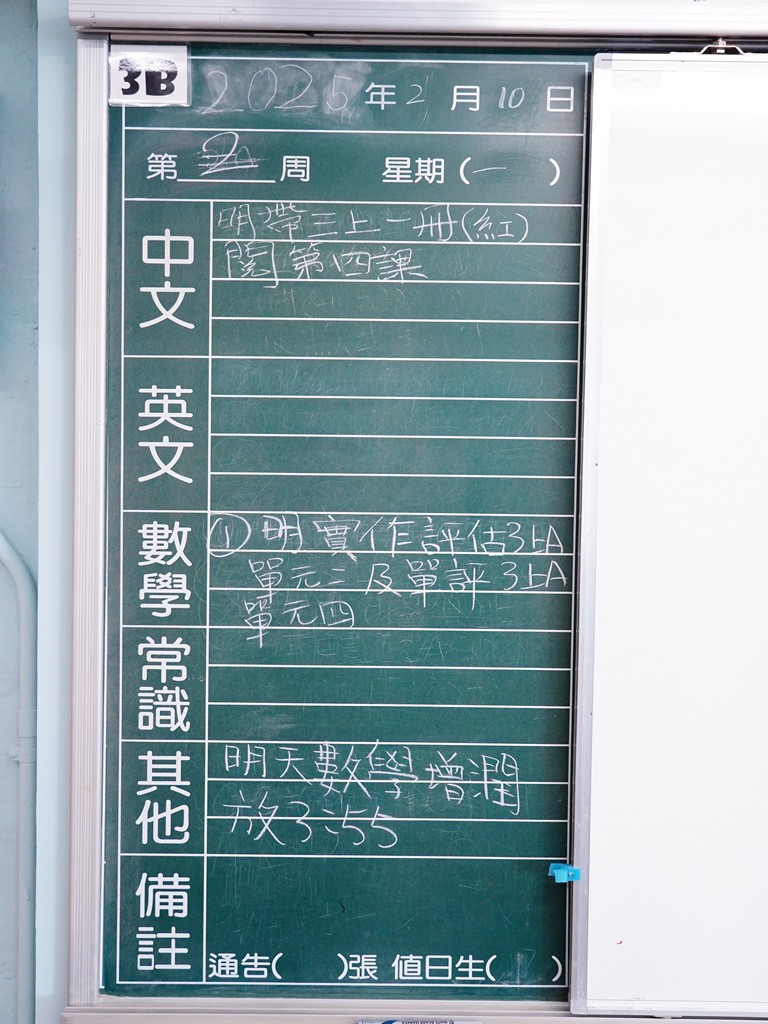 3B
2025年2月10日
第2周 星期(一)
中文
明帶三上一冊(紅)
閱第四課
英文
數學
① 明實作評估3上A
單元二及單評3上A
單元四
常識
其他
明天數學增潤
放3:55
備註
通告( )張 值日生( )